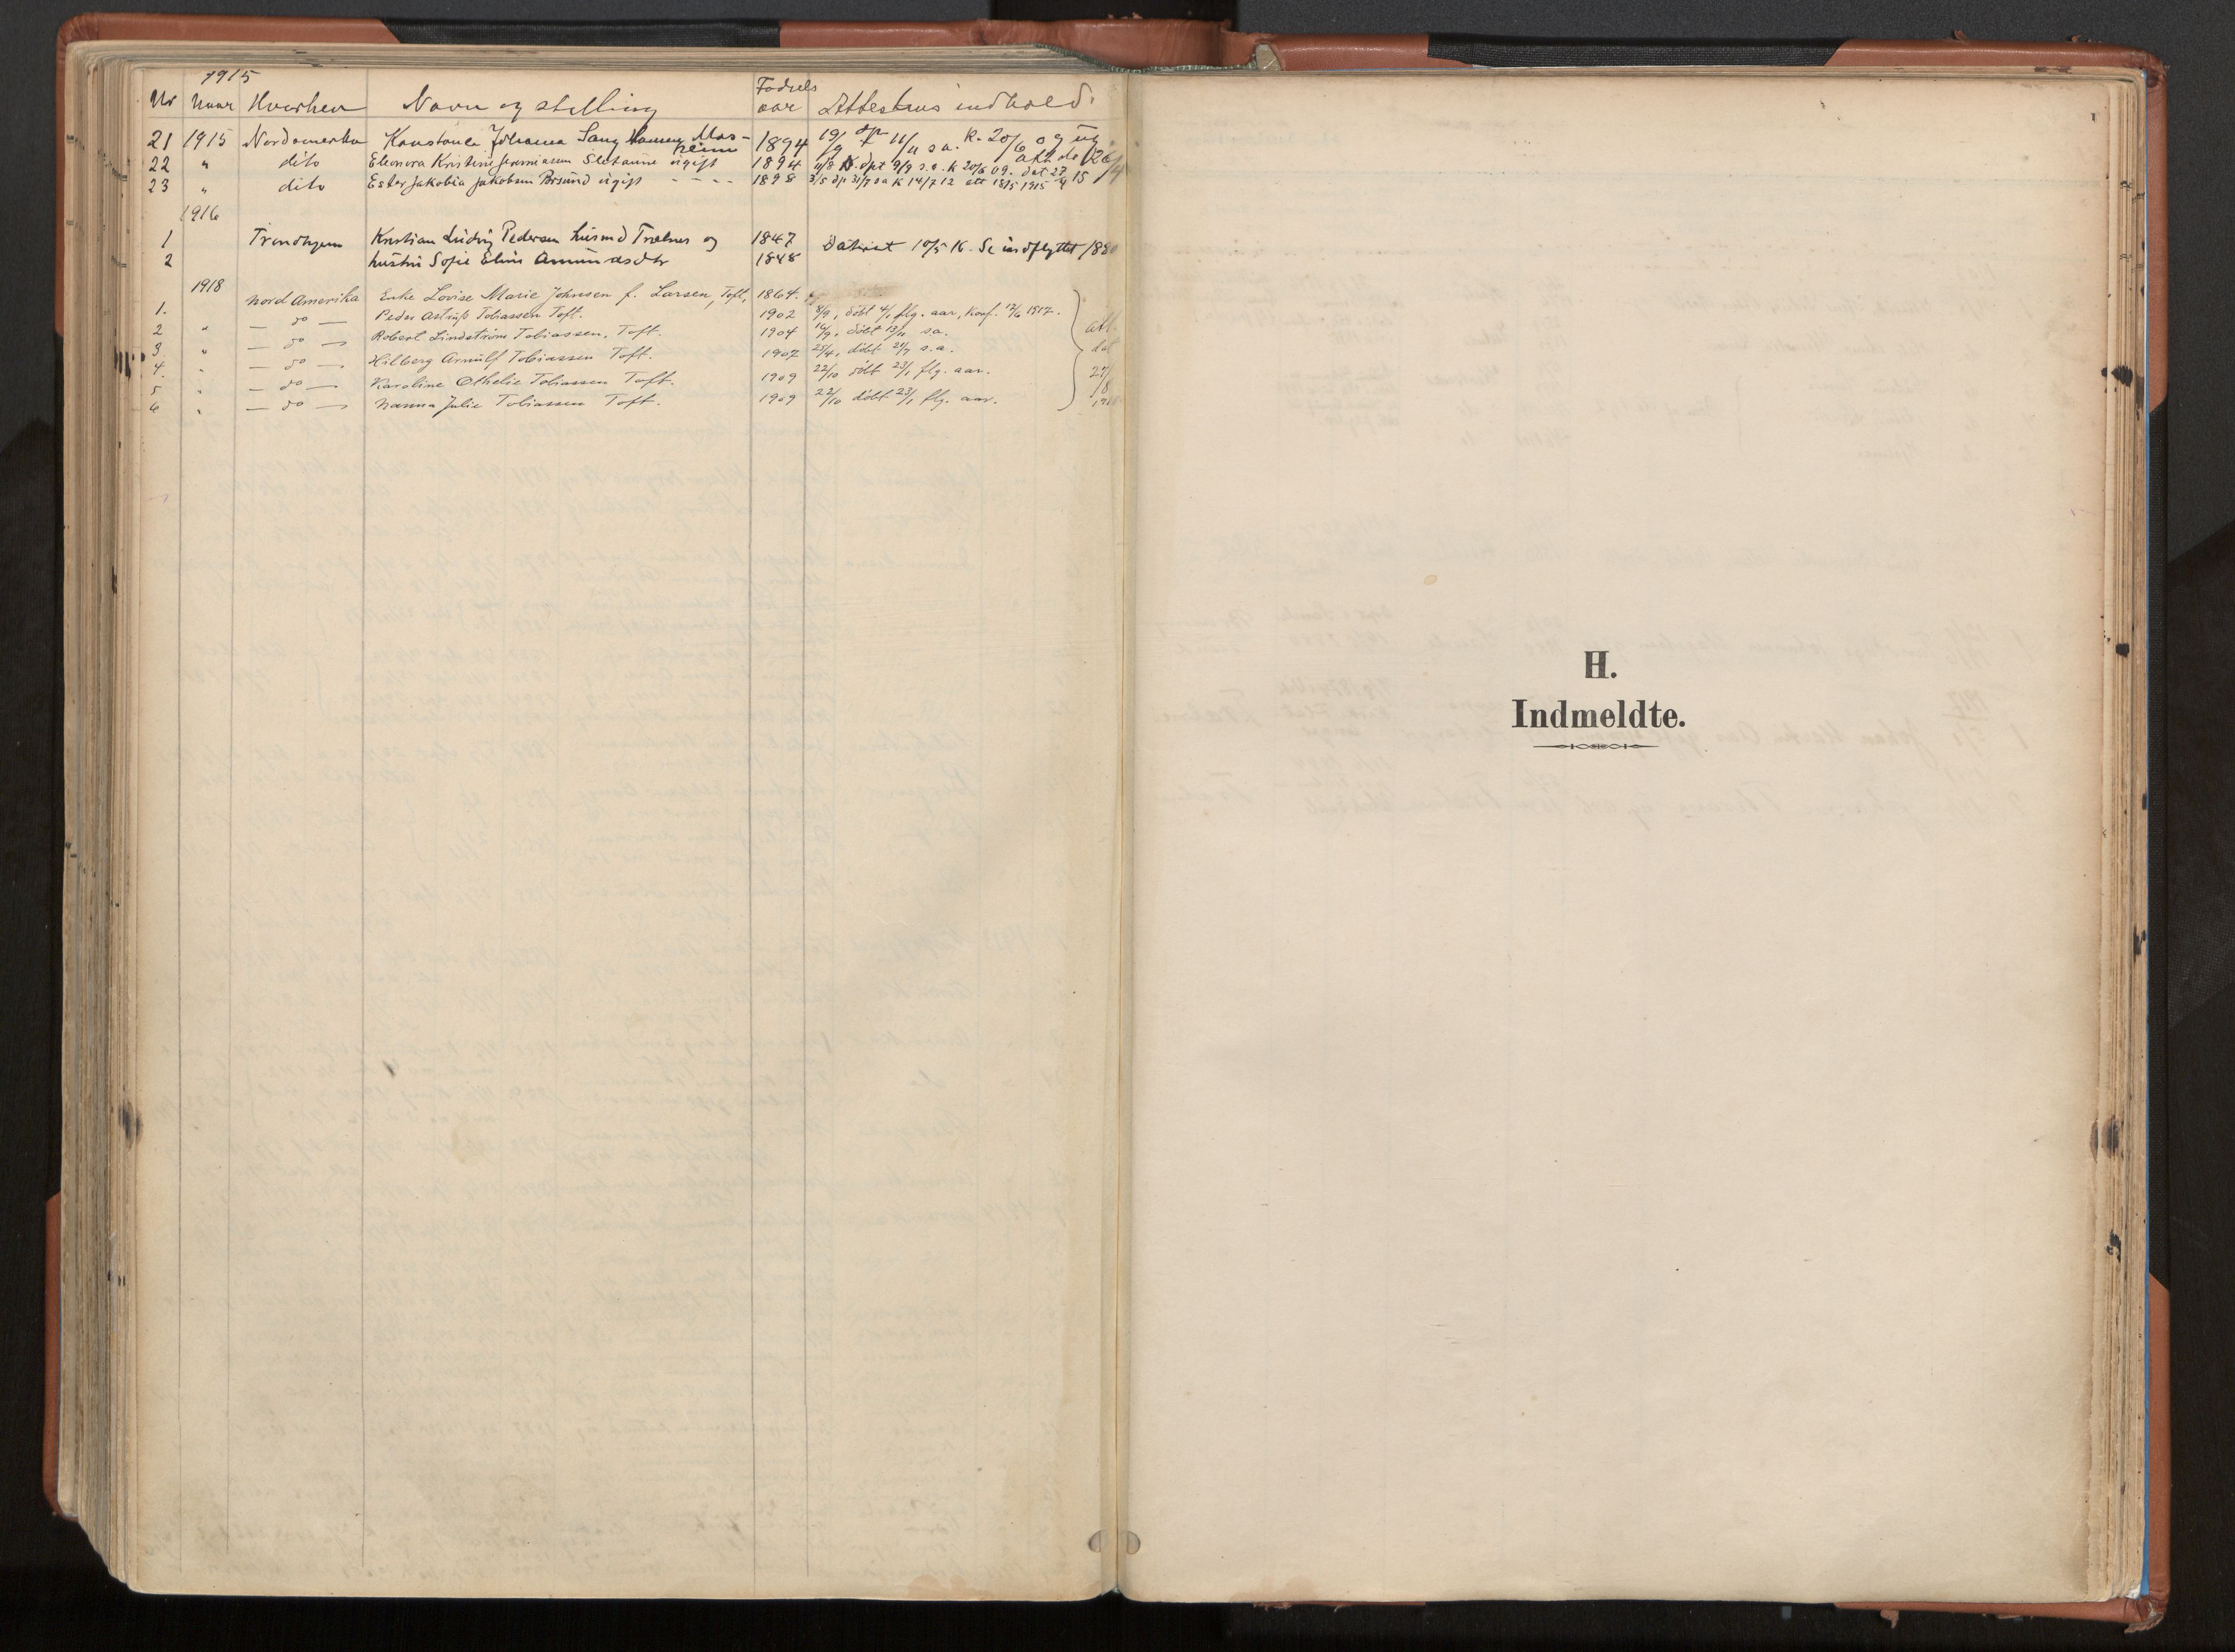 1915
Nr Naar Hvorhen Navn og stilling Fødsels aar Attestens indhold
21 1915 Nordamerika Johanna 1894 19/9 dp 11/11 s.a. K. 20/6 09 ug
22 " dito Eleonora Kristine Jeremiassen ugift 1894 11/8 dpt 9/9 s.a. K 20/6 09. dat 27/4 15
23 " dito Ester Jakobia Jakobsen ugift - - - - 1898 3/5 dp 31/7 sa K 14/7 12 att 18/5 1915
1916
1 Trondhjem Kristian Ludvig Pedersen husmd Trælnes og 1847 Datert 10/5 16. Se indflyttet 1880
2 hustru Sofie Eline Amundsdtr 1848
1918
1. Nord Amerika Enke Lovise Marie Johnsen f. Larsen, Toft, 1864.
2 " — do — Peder Tobiassen Toft. 1902 8/9, döbt 4/1 flg. aar, Konf. 17/6 1917.
3. " — do — Robert Lindström Tobiassen, Toft. 1904 16/9, döbt 13/11 s.a.
4. " — do — Hilberg Arnulf Tobiassen Toft. 1907 25/4, döbt 21/7 s.a.
5 " — do — Karoline Othelie Tobiassen Toft. 1909 22/10 döbt 23/1 flg. aar.
6 " — do — Nanna Julie Tobiassen Toft. 1909 22/10 döbt 23/1 flg. aar.
att.
dat
27/8
H.
Indmeldte.